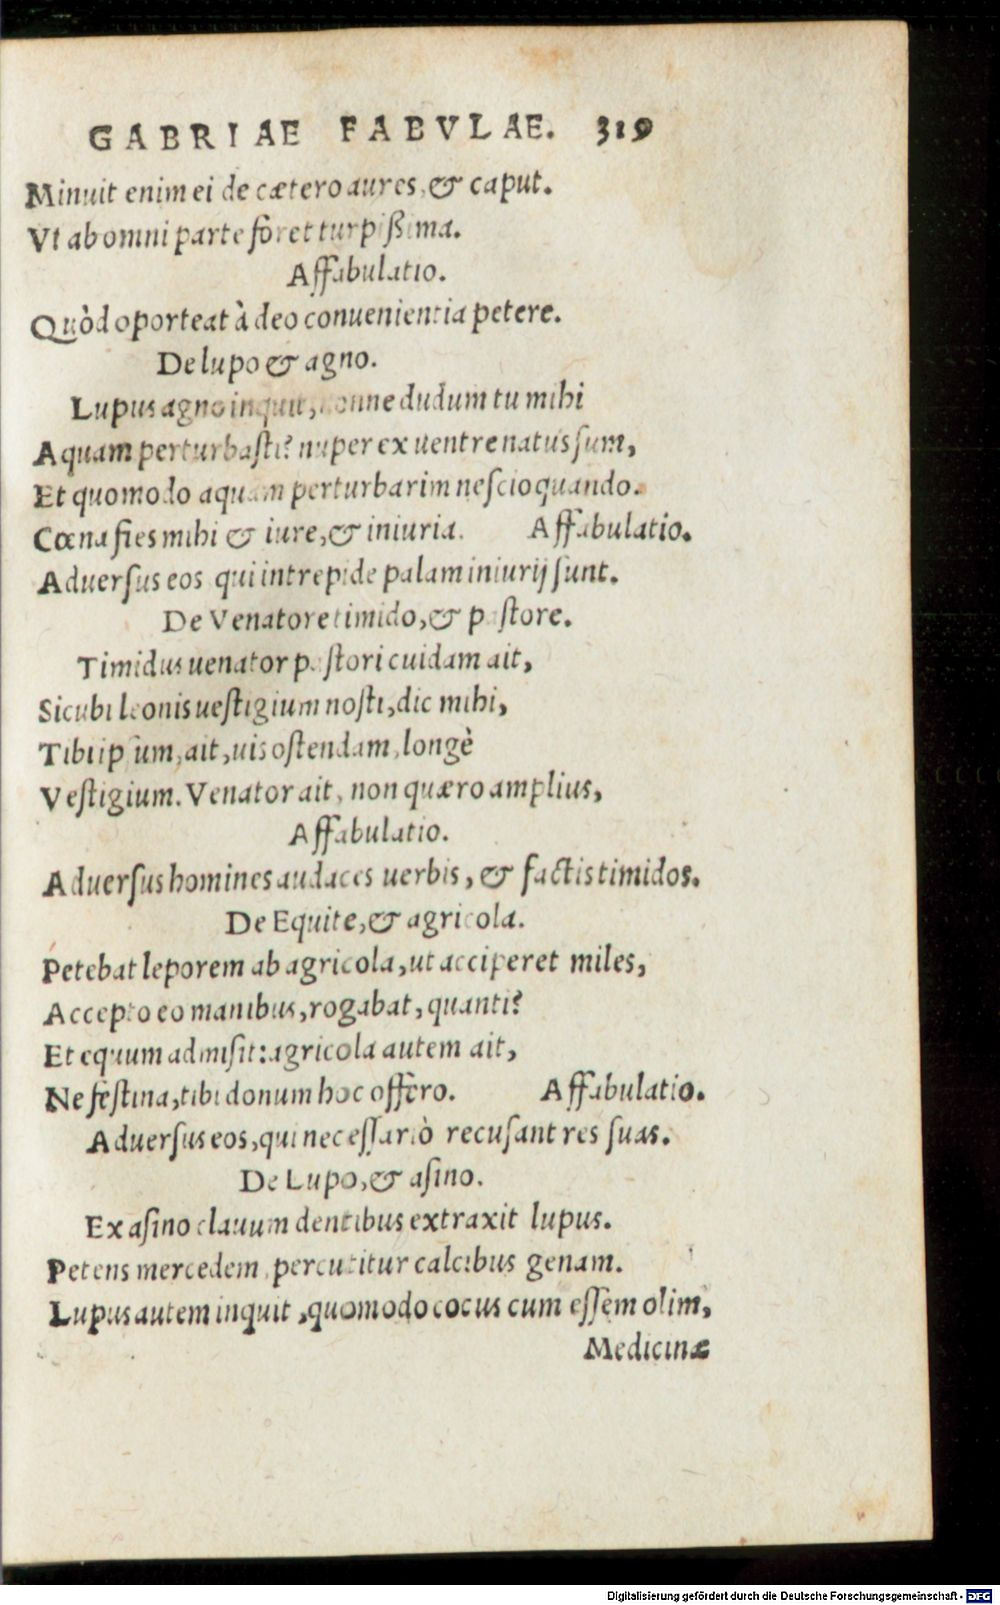 GABRIAE FABVLAE. 319
Minuit enim ei de cætero aures, & caput.
Vt ab omni parte foret turpißima.
Affabulatio.
Quòd oporteat à deo conuenientia petere.
De lupo & agno.
Lupus agno inquit, nonne dudum tu mihi
Aquam perturbasti? nuper ex uentre natus sum,
Et quomodo aquam perturbarim nescio quando.
Cœna fies mihi & iure, & iniuria. Affabulatio.
Aduersus eos qui intrepide palam iniurij sunt.
De Venatore timido, & pastore.
Timidus uenator pastori cuidam ait,
Sicubi leonis uestigium nosti, dic mihi,
Tibi ipsum, ait, uis ostendam, longè
Vestigium. Venator ait, non quæro amplius,
Affabulatio.
Aduersus homines audaces uerbis, & factis timidos.
De Equite, & agricola.
Petebat leporem ab agricola, ut acciperet miles,
Accepto eo manibus, rogabat, quanti?
Et equum admisit: agricola autem ait,
Ne festina, tibi donum hoc offero. Affabulatio.
Aduersus eos, qui necessariò recusant res suas.
De Lupo, & asino.
Ex asino clauum dentibus extraxit lupus.
Petens mercedem, percutitur calcibus genam.
Lupus autem inquit, quomodo cocus cum essem olim,
Medicinæ
Digitalisierung gefördert durch die Deutsche Forschungsgemeinschaft - DFG